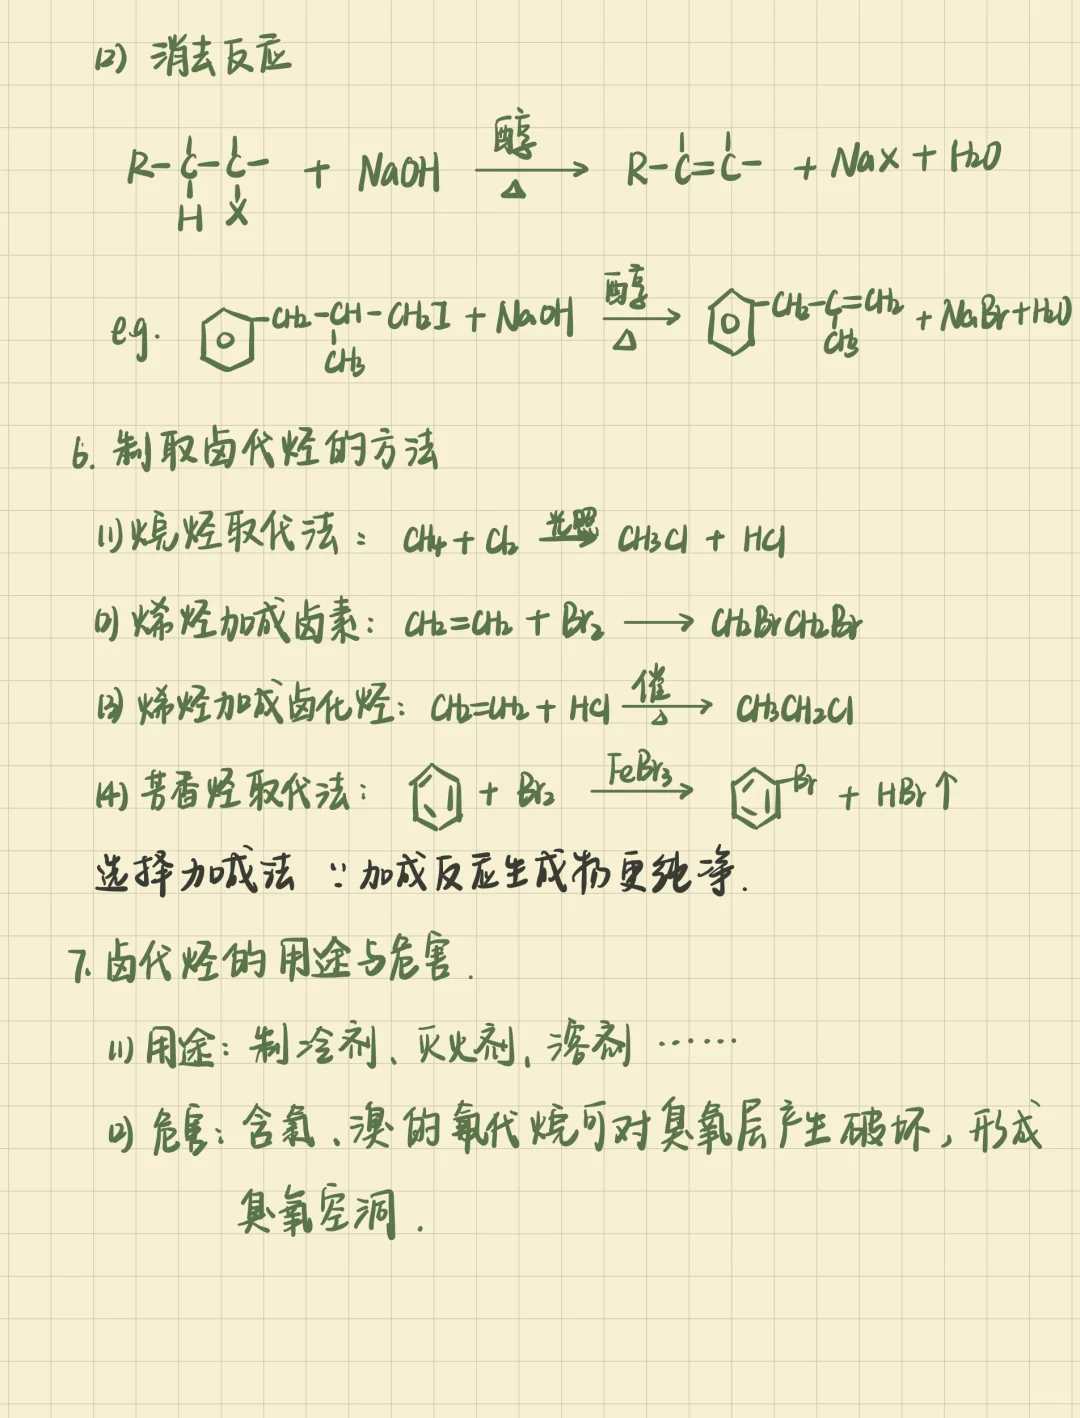 (2) 消去反应
R-C-C- + NaOH 醇 △ → R-C=C- + NaX + H2O
H X
e.g. -CH2-CH-CH2I + NaOH 醇 △ → -CH2-C=CH2 + NaBr + H2O
CH3 CH3
6. 制取卤代烃的方法
(1) 烷烃取代法: CH4 + Cl2 光照 → CH3Cl + HCl
(2) 烯烃加成卤素: CH2=CH2 + Br2 → CH2BrCH2Br
(3) 烯烃加成卤化烃: CH2=CH2 + HCl 催 △ → CH3CH2Cl
(4) 芳香烃取代法: + Br2 FeBr3 → Br + HBr↑
选择加成法 ∵加成反应生成物更纯净.
7. 卤代烃的用途与危害.
(1) 用途: 制冷剂、灭火剂、溶剂 ……
(2) 危害: 含氯、溴的氟代烷可对臭氧层产生破坏, 形成
臭氧空洞.